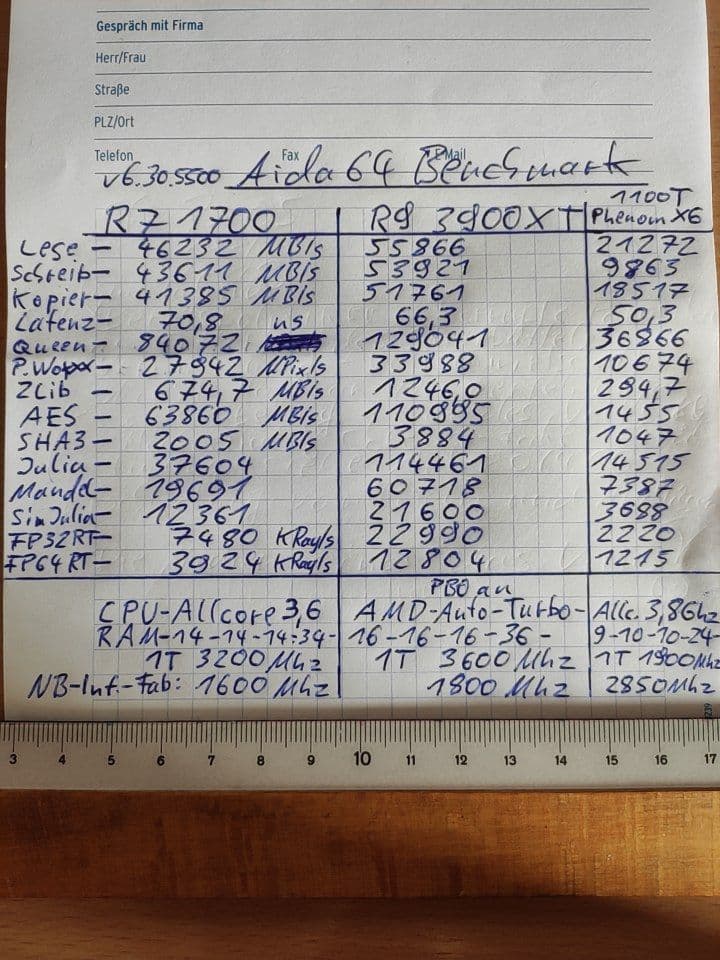 Gespräch mit Firma
Herr/Frau
Straße
PLZ/Ort
Telefon Fax E-Mail
v6.30.5500 Aida64 Benchmark
R7 1700 R9 3900XT 1100T Phenom X6
Lese - 46232 MB/s 55866 21272
Schreib- 43611 MB/s 53921 9863
Kopier- 41385 MB/s 51761 18517
Latenz- 70,8 ns 66,3 50,3
Queen- 84072 129041 36866
P.Woxx- 27942 MPix/s 33988 10674
ZLib - 674,7 MB/s 1246,0 294,7
AES - 63860 MB/s 110995 1455
SHA3- 2005 MB/s 3884 1047
Julia- 37604 114461 14515
Mandel- 19691 60718 7387
SinJulia- 12361 21600 3688
FP32RT- 7480 KRay/s 22990 2220
FP64RT- 3924 KRay/s 12804 1215
PBO an
CPU-Allcore 3,6 AMD-Auto-Turbo- Allc. 3,8Ghz
RAM-14-14-14-34- 16-16-16-36- 9-10-10-24-
1T 3200Mhz 1T 3600Mhz 1T 1900Mhz
NB-Inf.-Fab: 1600Mhz 1800Mhz 2850Mhz
3 4 5 6 7 8 9 10 11 12 13 14 15 16 17